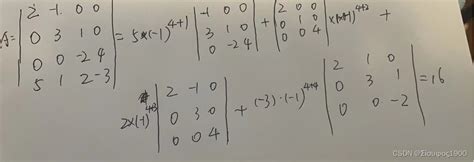 A = |2 -1 0 0; 0 3 1 0; 0 0 -2 4; 5 1 2 -3| = 5×(-1)^{4+1} |-1 0 0; 3 1 0; 0 -2 4| + |2 0 0; 0 1 0; 0 0 4| ×(-1)^{4+2} +
2×(-1)^{4+3} |2 -1 0; 0 3 0; 0 0 4| + (-3)·(-1)^{4+4} |2 1 0; 0 3 1; 0 0 -2| = 16
CSDN @Σίσυφος1900